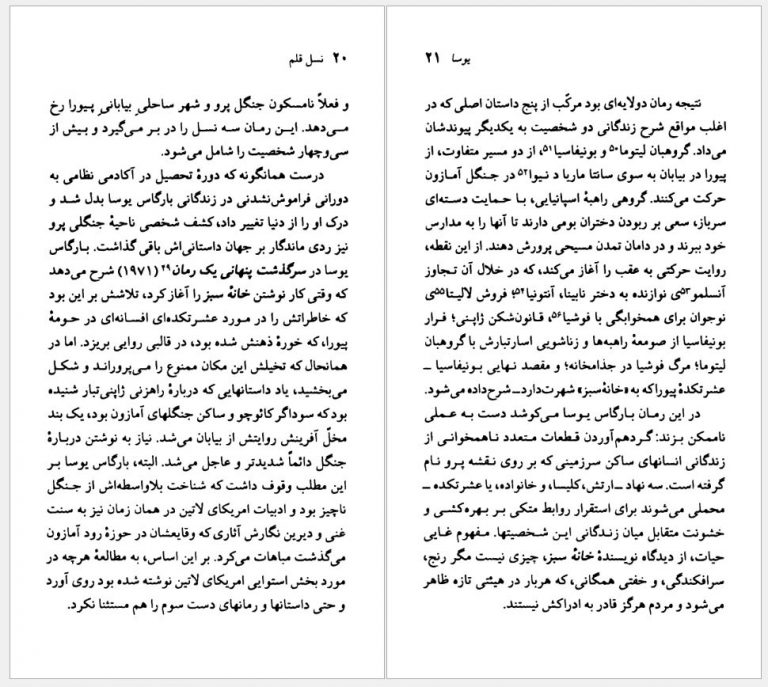 ۲۰ نسل قلم
و فعلاً نامسکون جنگل پرو و شهر ساحلیِ بیابانیِ پیورا رخ
می‌دهد. این رمان سه نسل را در بر می‌گیرد و بیش از
سی‌وچهار شخصیت را شامل می‌شود.
درست همانگونه که دورهٔ تحصیل در آکادمی نظامی به
دورانی فراموش‌نشدنی در زندگانی بارگاس یوسا بدل شد و
درک او را از دنیا تغییر داد، کشف شخصی ناحیهٔ جنگلی پرو
نیز ردی ماندگار بر جهان داستانی‌اش باقی گذاشت. بارگاس
یوسا در سرگذشت پنهانی یک رمان۴۹ (۱۹۷۱) شرح می‌دهد
که وقتی کار نوشتن خانهٔ سبز را آغاز کرد، تلاشش بر این بود
که خاطراتش را در مورد عشرتکده‌ای افسانه‌ای در حومهٔ
پیورا، که خورهٔ ذهنش شده بود، در قالبی روایی بریزد. اما در
همانحال که تخیلش این مکان ممنوع را می‌پروراند و شکل
می‌بخشید، یاد داستانهایی که دربارهٔ راهزنی ژاپنی‌تبار شنیده
بود که سوداگر کائوچو و ساکن جنگلهای آمازون بود، یک بند
مخلّ آفرینش روایتش از بیابان می‌شد. نیاز به نوشتن دربارهٔ
جنگل دائماً شدیدتر و عاجل می‌شد. البته، بارگاس یوسا بر
این مطلب وقوف داشت که شناخت بلاواسطه‌اش از جنگل
ناچیز بود و ادبیات امریکای لاتین در همان زمان نیز به سنت
غنی و دیرین نگارش آثاری که وقایعشان در حوزهٔ رود آمازون
می‌گذشت مباهات می‌کرد. بر این اساس، به مطالعهٔ هرچه در
مورد بخش استوایی امریکای لاتین نوشته شده بود روی آورد
و حتی داستانها و رمانهای دست سوم را هم مستثنا نکرد.
یوسا ۲۱
نتیجه رمان دولایه‌ای بود مرکّب از پنج داستان اصلی که در
اغلب مواقع شرح زندگانی دو شخصیت به یکدیگر پیوندشان
می‌داد. گروهبان لیتوما۵۰ و بونیفاسیا۵۱، از دو مسیر متفاوت، از
پیورا در بیابان به سوی سانتا ماریا د نیوا۵۲ در جنگل آمازون
حرکت می‌کنند. گروهی راهبهٔ اسپانیایی، با حمایت دسته‌ای
سرباز، سعی بر ربودن دختران بومی دارند تا آنها را به مدارس
خود ببرند و در دامان تمدن مسیحی پرورش دهند. از این نقطه،
روایت حرکتی به عقب را آغاز می‌کند، که در خلال آن تجاوز
آنسلمو۵۳ی نوازنده به دختر نابینا، آنتونیا۵۴؛ فروش لالیتا۵۵ی
نوجوان برای همخوابگی با فوشیا۵۶، قانون‌شکن ژاپنی؛ فرار
بونیفاسیا از صومعهٔ راهبه‌ها و زناشویی اسارتبارش با گروهبان
لیتوما؛ مرگ فوشیا در جذامخانه؛ و مقصد نهایی بونیفاسیا ــ
عشرتکدهٔ پیورا که به «خانهٔ سبز» شهرت دارد ــ شرح داده می‌شود.
در این رمان بارگاس یوسا می‌کوشد دست به عملی
ناممکن بزند: گردهم‌آوردن قطعات متعدد ناهمخوانی از
زندگانی انسانهای ساکن سرزمینی که بر روی نقشه پرو نام
گرفته است. سه نهاد ــ ارتش، کلیسا، و خانواده، یا عشرتکده ــ
محملی می‌شوند برای استقرار روابط متکی بر بهره‌کشی و
خشونت متقابل میان زندگانی این شخصیتها. مفهوم غایی
حیات، از دیدگاه نویسندهٔ خانهٔ سبز، چیزی نیست مگر رنج،
سرافکندگی، و خفتی همگانی، که هربار در هیئتی تازه ظاهر
می‌شود و مردم هرگز قادر به ادراکش نیستند.